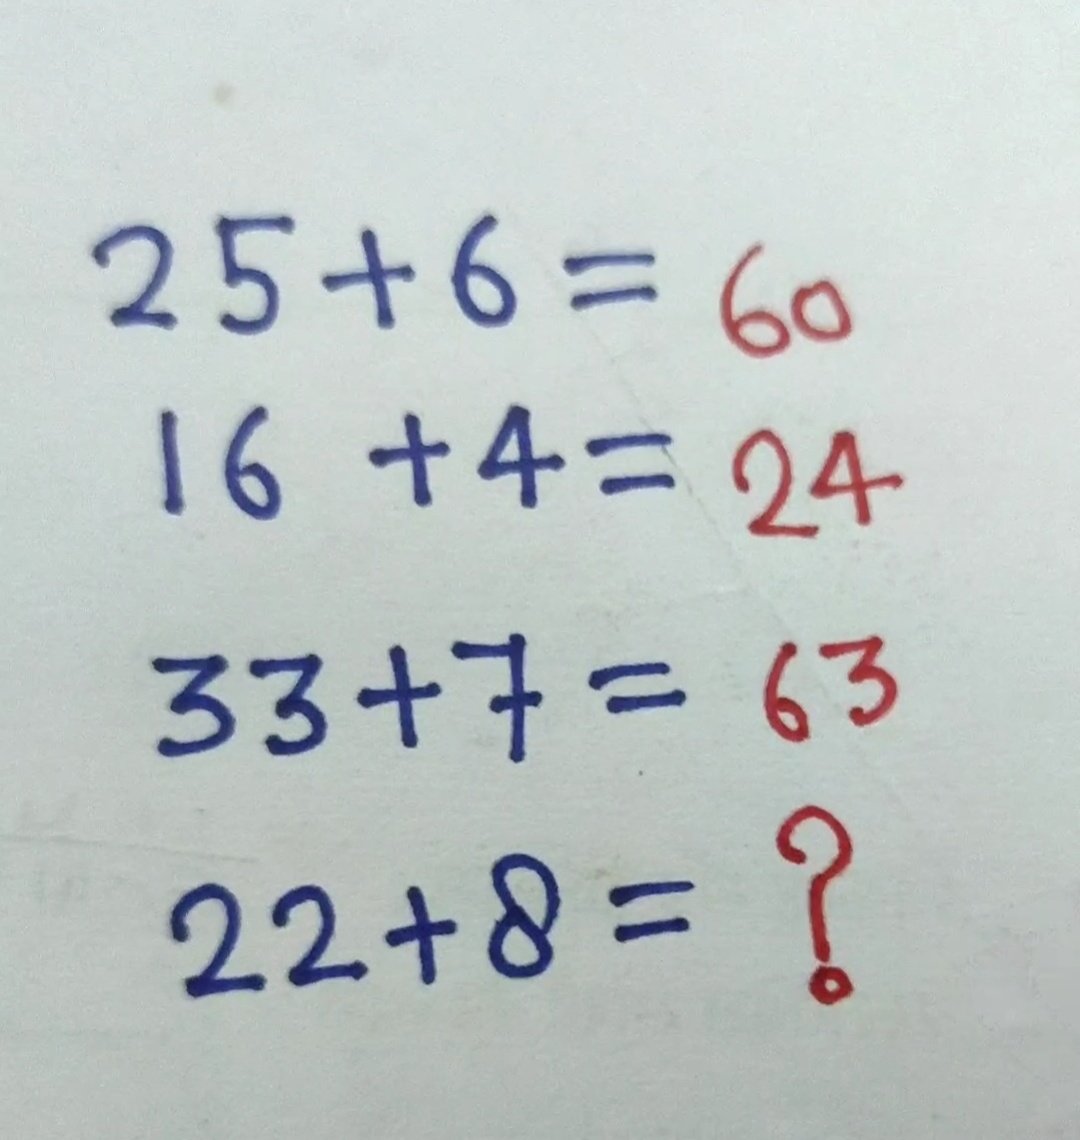 25+6= 60
16 +4= 24
33+7= 63
22+8= ?